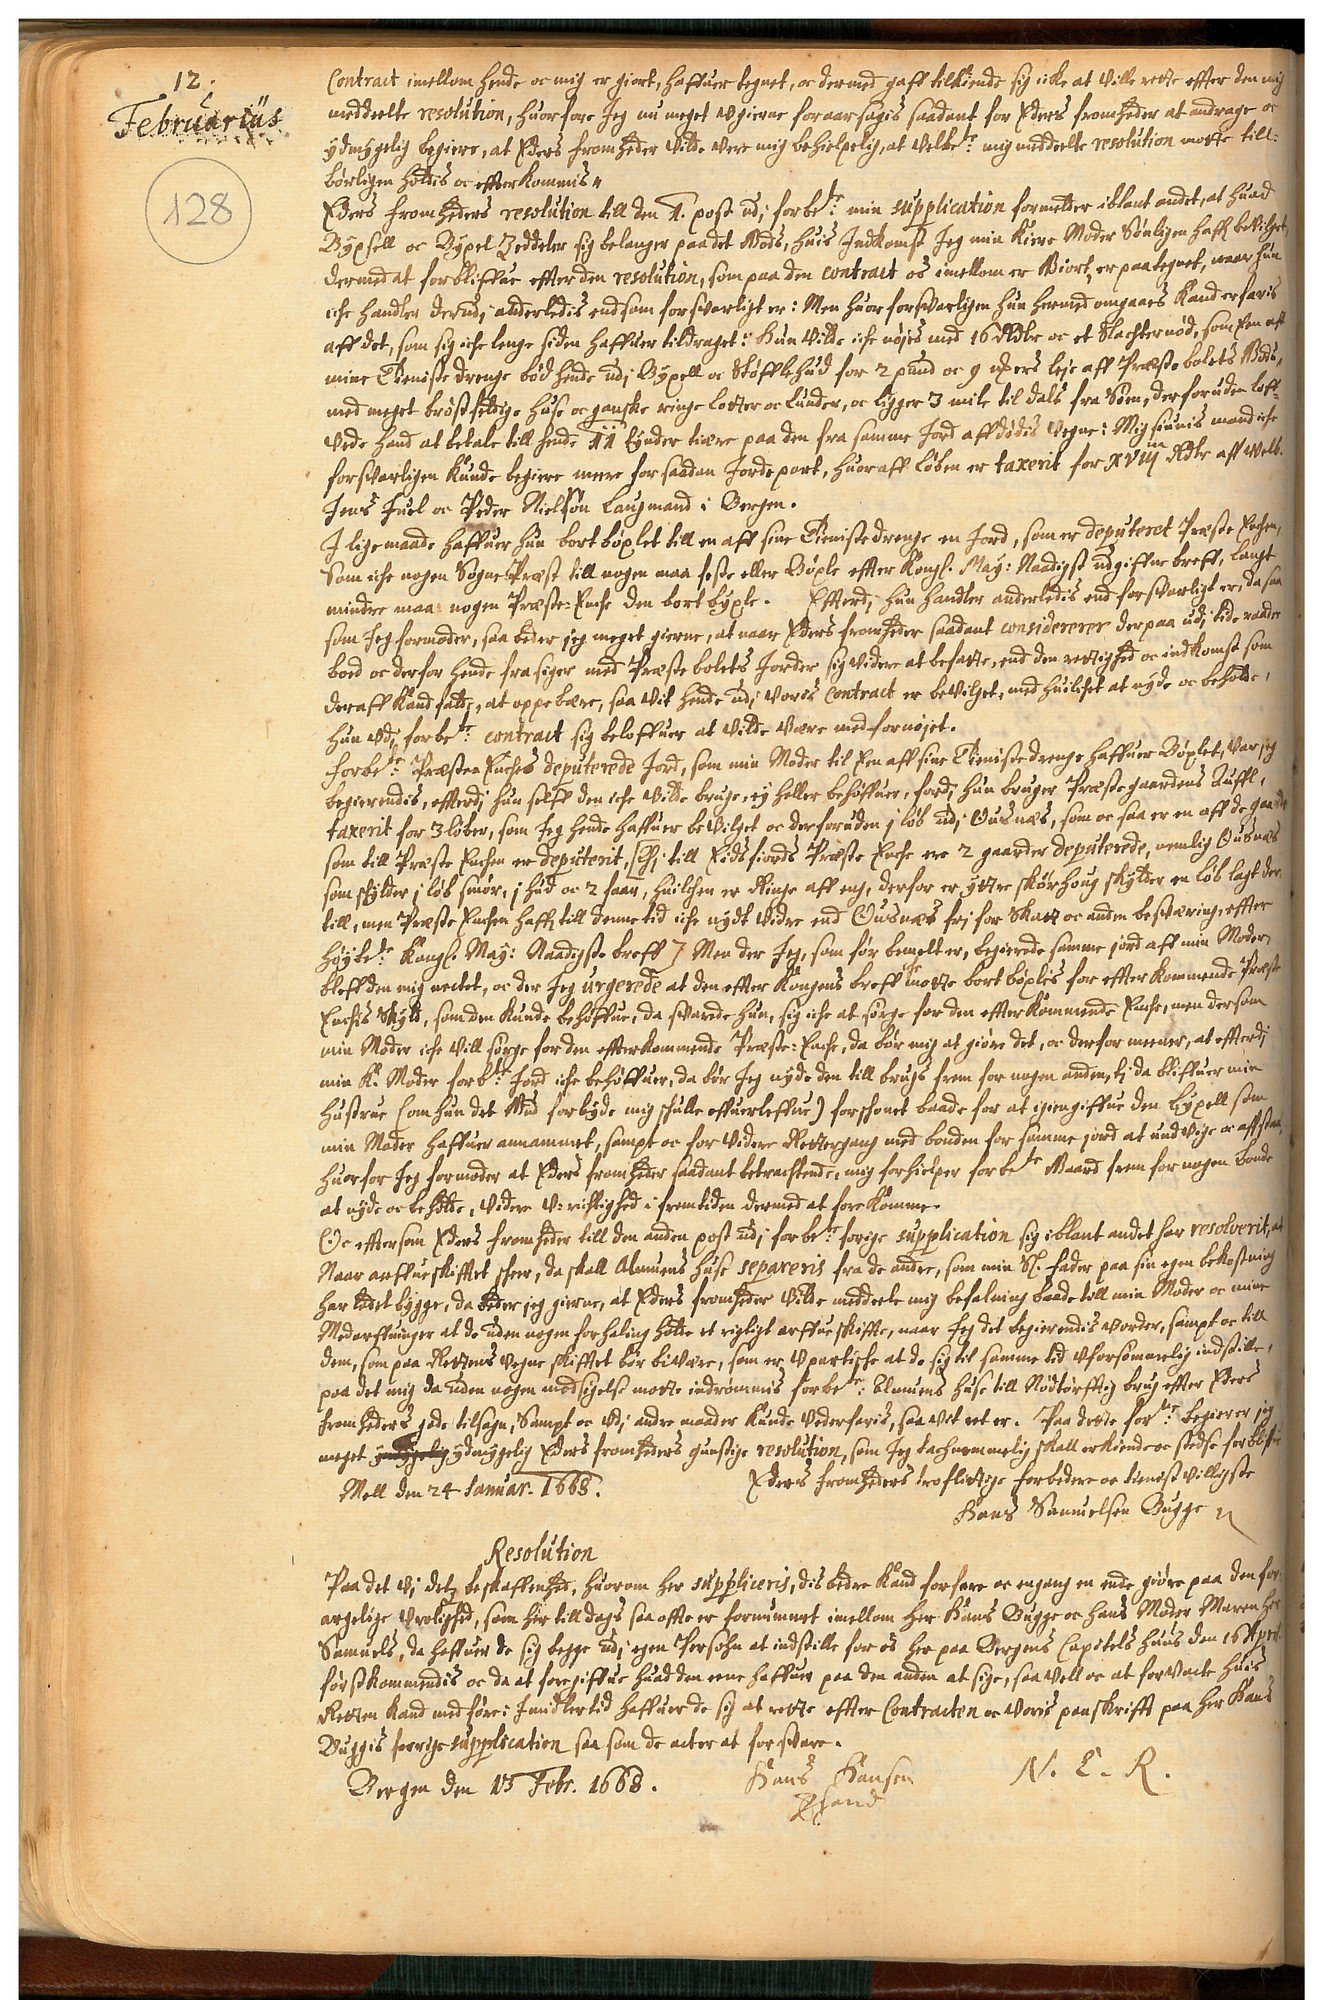 12.
Februarius
128
Contract imellom hende oc mig er giort, haffuer tegnet, oc dermed gaff tilkiende sig icke at ville rette effter den mig
meddeelte resolution, huorfore Jeg nu meget ugierne foraarsagis saadant for Eders fromheder at andrage oc
ydmygelig begiere, at Eders fromheder vilde vere mig behielpelig, at velbte: mig meddeelte resolution motte till-
børligen holdis oc effterkommis
Eders fromheders resolution till den 1. post udj forbete: min supplication formelder iblant andet, at huad
Byxsell oc Byxel Zeddeler sig belanger paa det Bods, huis Indkomst Jeg min kiere Moder Sønligen haffr bevilget,
dermed at forbliffue effter den resolution, som paa den contract os imellom er Giort, er paategnet, naar hun
iche handler derudj anderledis end som forsvarligt er: Men huor forsvarligen hun hermed omgaaes kand erfaris
aff det, som sig iche lenge siden haffuer tildraget: Hun vilde iche nøjes med 16 Rdlr oc et Slachternød, som Een aff
mine Tieniste drenge bød hende udj Byxell oc Støffelhud for 2 pund oc 9 leje aff Præste bolets Gods,
med meget brøstfeldige huse oc ganske ringe lotter oc lunder, oc ligger 3 mile til dals fra Søen, der foruden loff-
vede hand at betale till hende 11 tynder tiere paa den fra samme Jord affdødis vegne: Mig siunis mand iche
forsvarligen kunde begiere mere for saadan Jordepart, huoraff løben er taxerit for xviij Rdlr aff Welb.
Jens Juel oc Peder Nielsøn Laugmand i Bergen.
I lige maade haffuer hun bort bøxlet till en aff sine Tieniste drenge en Jord, som er deputeret Præste Enchen,
som iche nogen Sogne Præst till nogen maa feste eller Bøxle effter Kongl. May: Naadigst udgiffne breff, langt
mindre maa nogen Præste-Enche den bort byxle. Efterdj hun handler anderledis end forsvarligt er, da saa
som Jeg formoder, saa beder jeg meget gierne, at naar Eders fromheder saadant considererer derpaa udj tide raader
boed oc derfor hende fra siger med Præste bolets Jorder sig videre at befatte, end den rettighed oc indkomst som
deraff kand falde, at oppebære, saa vit hende udj voris Contract er bevilget, med huilchet at nyde oc beholde,
hun udj forbete: contract sig beloffuer at vilde være med fornøjet.
Forbete: Præste Enches deputerede Jord, som min Moder til Een aff sine Tieniste drenge haffuer Bøxlet, var jeg
begierendis, effterdj hun self den iche vilde bruge, ej heller behøffuer, fordj hun bruger Præstegaardens Auffl,
taxerit for 3 løber, som Jeg hende haffuer bevilget oc derforuden j løb udj Ousnæs, som oc saa er en aff de gaarder
som till Præste Enchen er deputerit, till Eidsfiords Præste Enche ere 2 gaarder deputerede, nemlig Ousnæs
som skylder j løb smør, j hud oc 2 faar, huilchen er Ringe aff eng, derfor er yttre skørhoug skylder en løb lagt der
till, men Præste Enchen haffr till denne tid iche nydt videre end Ousnæs frj for Skatt oc anden besværing effter
høybete: Kongl. May: Naadigste breff) Men der Jeg, som før bemelt er, begierede samme jord aff min Moder,
bleff den mig nectet, oc der Jeg urgerede at den effter Kongens breff motte bort bøxlis for effterkommende Præste
Enches skyld, som den kunde behøffue, da svarede hun, sig iche at sørge for den effterkommende Enche, men dersom
min Moder iche vill sørge for den effterkommende Præste-Enche, da bør mig at giøre det, oc derfor meener, at effterdj
min K. Moder forbte: Jord iche behøffuer, da bør Jeg nyde den till brugs frem for nogen anden, thj da bliffuer min
Hustrue (om hun det Gud forbyde mig skulle offuerleffue) forskonet baade for at igiengiffue den byxell som
min Moder haffuer annammet, sampt oc for videre Rettergang med bonden for samme jord at undvige oc affstaa,
huorfor Jeg formoder at Eders fromheder saadant betrachtende, mig forhielper forbete Gaard frem for nogen bonde
at nyde oc beholde, videre V-richtighed i fremtiden dermed at forekomme.
Oc effter som Eders fromheder till den anden post udj forbete: forige supplication sig iblant andet har resolverit, at
Naar arffueskifftet skeer, da skall Almuens huse separeris fra de andre, som min Sl. fader paa sin egen bekostning
har ladet bygge, da beder jeg gierne, at Eders fromheder vilde meddeele mig befalning baade till min Moder oc mine
Medarffuinger at de uden nogen forhaling holde et rigtigt arffueskiffte, naar Jeg det begierendis vorder, sampt oc till
dem, som paa Rettens vegne skifftet bør bivære, som er Upartiske at de sig til samme tid uforsømmelig indstille,
paa det mig da uden nogen modsigelse motte indrømmis forbete: Almuens huse till Nødtørfftig brug effter Eders
fromheders gode tilsagn, Sampt oc udj andre maader kunde vederfaris, saa vit ret er. Paa dette forte: begierer jeg
meget ydmygelig Eders fromheders gunstige resolution, som Jeg tachnemmelig skall erkiende oc stedse forbliffue
Mell den 24 Januar. 1668. Eders fromheders troflittige forbedere oc tienstvilligste
Hans Samuelsen Bugge
Resolution
Paa det Vj dets beskaffenhed, huorom her suppliceris, dis bedre kand forfare oc engang en ende giøre paa den for-
argelige Urolighed, som hertilldags saa offte er fornummet imellom Her Hans Bugge oc hans Moder Maren Her
Samuels, da haffuer de sig begge udj egen Persohn at indstille for os her paa Bergens Capitels huus den 16 April.
førstkommendis oc da at foregiffue huad den eene haffuer paa den anden at sige, saa vell oc at forvente huis
Retten kand medføre: Imidlertid haffuer de sig at rette effter Contracten oc voris paaskrifft paa Her Hans
Buggis forrige supplication saa som de acter at forsvare.
Bergen den 13 Febr. 1668. Hans Hansen N. E. R.